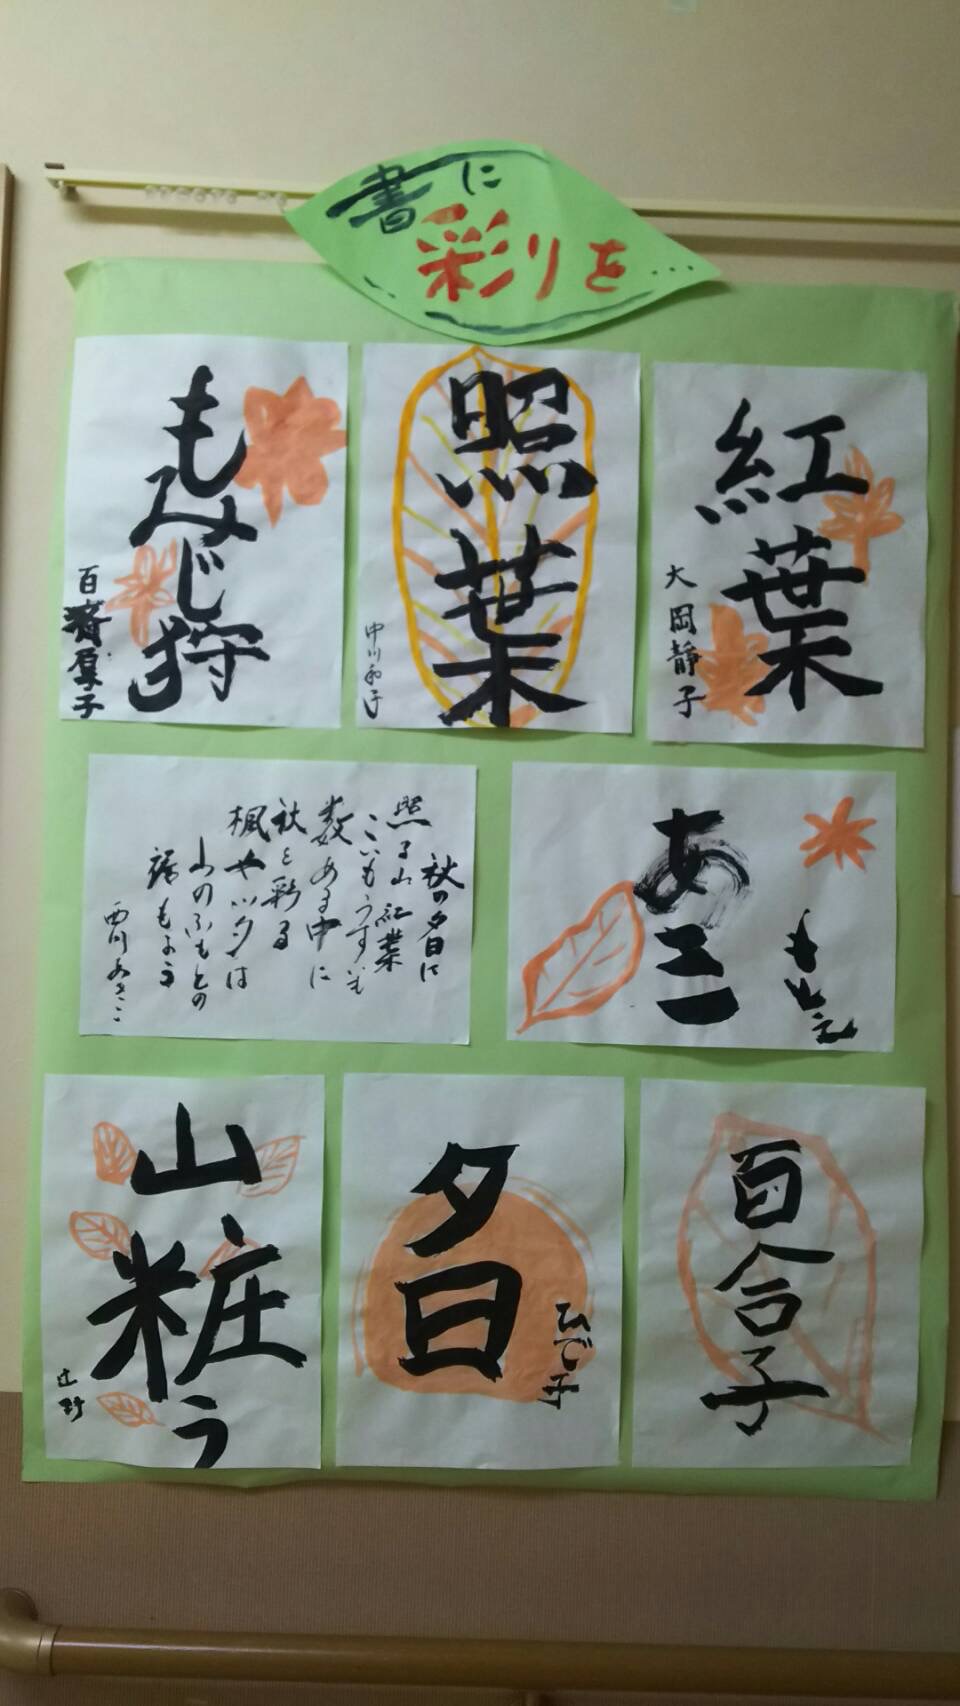 書に
彩りを…
紅葉
大岡静子
照葉
中川和子
もみじ狩
百
子
あき
秋の夕日に
照る山紅葉
こいもうすいも
数ある中に
秋を彩る
楓やツタは
山のふもとの
裾もよう
西川
百合子
夕日
ひで子
山粧う
辻野